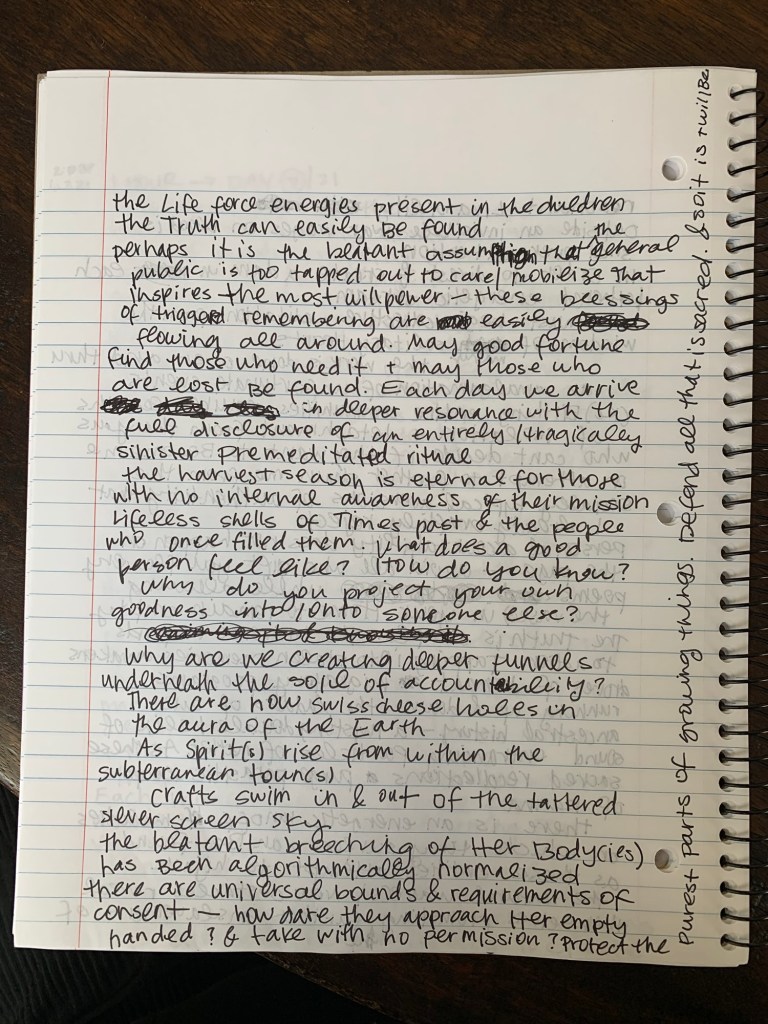 the Life force energies present in the children
the Truth can easily Be found
perhaps it is the blatant assumption that the general
public is too tapped out to care/mobilize that
inspires the most willpower - these blessings
of triggerd remembering are easily
flowing all around. May good fortune
find those who need it + may those who
are lost Be found. Each day we arrive
in deeper resonance with the
full disclosure of an entirely/tragically
sinister premeditated ritual
the harvest season is eternal for those
with no internal awareness of their mission
Lifeless shells of Times past & the people
who once filled them. What does a good
person feel like? How do you know?
Why do you project your own
goodness into/onto someone else?
Why are we creating deeper tunnels
underneath the soil of accountability?
There are now swiss cheese holes in
the aura of the Earth
As Spirit(s) rise from within the
subterranean town(s)
Crafts swim in & out of the tattered
silver screen sky
the blatant breeching of Her Body(ies)
has Been algorithmically normalized
there are universal bounds & requirements of
consent — how dare they approach Her empty
handed? & take with no permission? Protect the
purest parts of growing things. Defend all that is sacred. & so it is + will Be